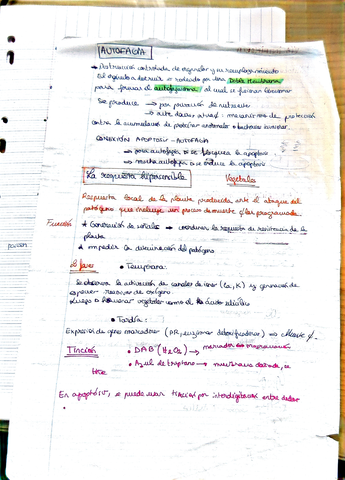 AUTOFAGIA
→ Destrucción controlada de orgánulos y su reemplazamiento
El orgánulo a destruir es rodeado por una Doble Membrana
para formar el autofagosoma al cual se fusionan lisosomas
Se produce → por privación de nutrientes
→ mecanismos de protección
contra la acumulación de proteínas anormales o bacterias
CONEXIÓN APOPTOSIS - AUTOFAGIA
→ poca autofagia si se bloquea la apoptosis
→ mucha autofagia se induce la apoptosis
La respuesta hipersensible Vegetales
Respuesta local de la planta producida ante el ataque del
patógeno que incluye un proceso de muerte celular programada.
Función * Generación de señales → inducen la respuesta de resistencia de la
planta
* Impedir la diseminación del patógeno
2 fases • Temprana:
Se observa la activación de canales de iones (Ca, K) y generación de
especies reactivas de oxígeno
Luego como el ácido salicílico
• Tardía:
Expresión de genes marcadores (PR, enzimas detoxificadoras) →
Tinción • DAB (H2O2) →
• Azul de tripano → muestra donde se
hice
En apoptosis, se puede usar tinción por